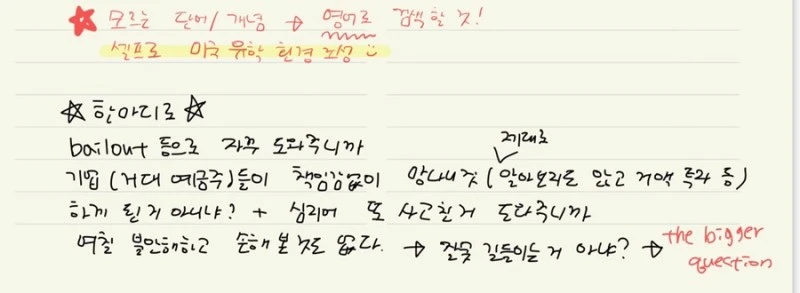 ★ 모르는 단어/개념 → 영어로 검색할 것!
셀프로 미국 유학 환경 조성 :)
☆한마디로☆
bailout 등으로 자꾸 도와주니까
기업(거대 예금주)들이 책임감없이 망나니짓(제대로 알아보지도 않고 거액 투자 등)
하게 된거 아니냐? + 심지어 또 사고친거 도와주니까
며칠 불안해하고 손해 본 것도 없다. → 잘못 길들이는 거 아냐? → the bigger question